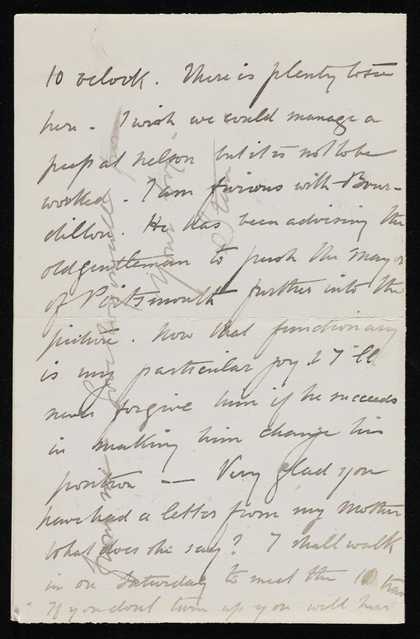 10 o'clock. There is plenty to see
here - I wish we could manage a
peep at Nelson but it is not to be
worked. I am furious with Bour-
dillon. He has been advising the
old gentleman to push the Mayor
of Portsmouth further into the
picture. Now that functionary
is my particular joy & I'll
never forgive him if he succeeds
in making him change his
position — Very glad you
have had a letter from my Mother
What does she say? I shall walk
in on Saturday to meet the 10 train
If you don't turn up you will hear
from me
Your